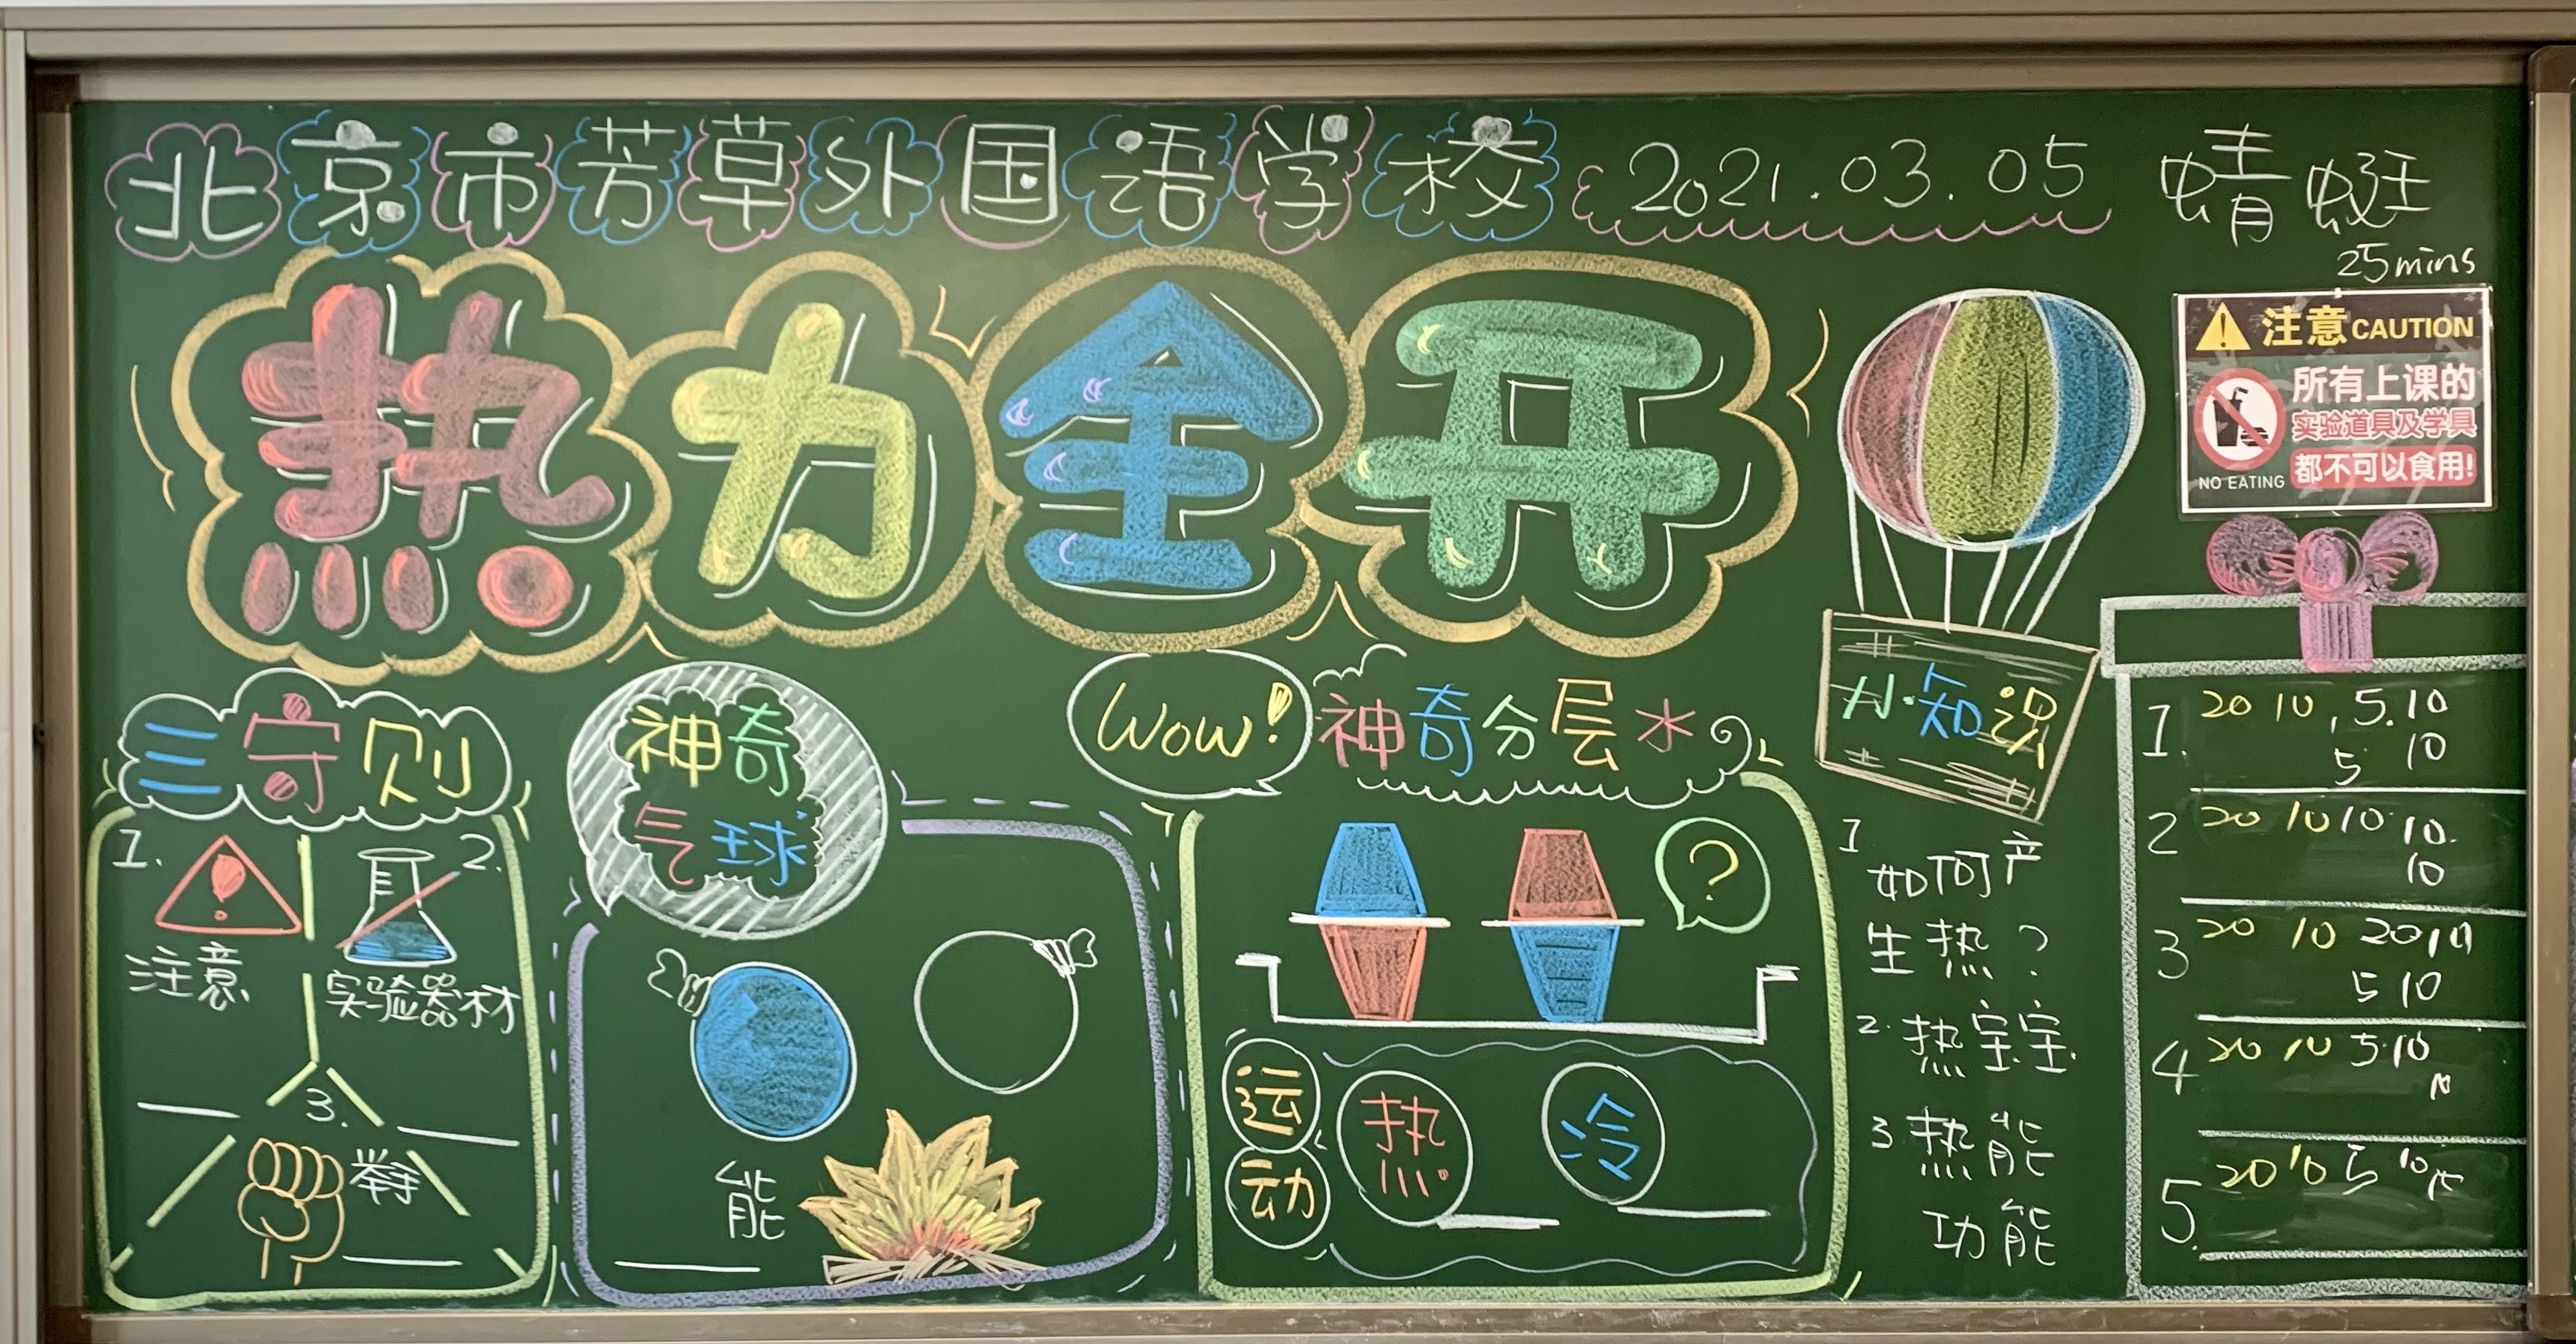 北京市芳草外国语学校 2021.03.05 蜻蜓
25mins
热力全开
注意 CAUTION
所有上课的
实验道具及学具
都不可以食用!
NO EATING
三守则
1.
注意
2.
实验器材
3.
举手
神奇
气球
能
Wow!
神奇分层水
?
运动
热
冷
小知识
1 如何产
生热?
2. 热宝宝
3 热能
功能
1. 20 10, 5.10
5 10
2 20 10 10 10
10
3 20 10 20 10
5 10
4 20 10 5 10
5. 20 10 5 10